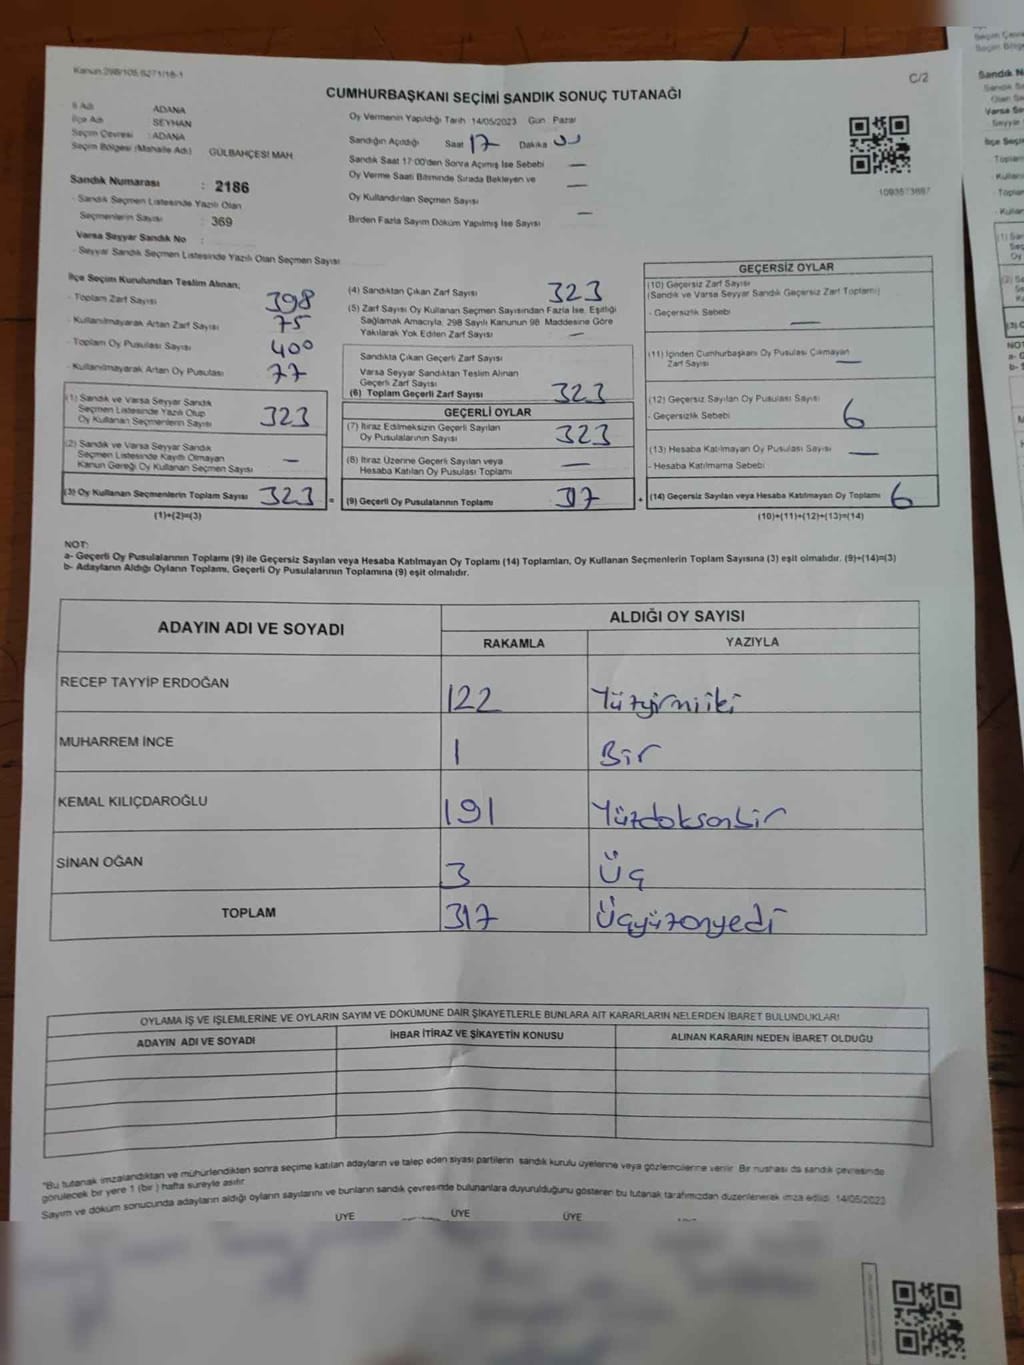 Kanun:298/105,6271/18-1
C/2
CUMHURBAŞKANI SEÇİMİ SANDIK SONUÇ TUTANAĞI
İl Adı ADANA
İlçe Adı SEYHAN
Seçim Çevresi : ADANA
Seçim Bölgesi (Mahalle Adı) GÜLBAHÇESİ MAH.
Sandık Numarası : 2186
- Sandık Seçmen Listesinde Yazılı Olan
Seçmenlerin Sayısı : 369
Varsa Seyyar Sandık No :
- Seyyar Sandık Seçmen Listesinde Yazılı Olan Seçmen Sayısı
Oy Vermenin Yapıldığı Tarih 14/05/2023 Gün : Pazar
Sandığın Açıldığı Saat 17 Dakika
Sandık Saat 17:00'den Sonra Açılmış İse Sebebi —
Oy Verme Saati Bitiminde Sırada Bekleyen ve
Oy Kullandırılan Seçmen Sayısı —
Birden Fazla Sayım Döküm Yapılmış İse Sayısı —
İlçe Seçim Kurulundan Teslim Alınan;
- Toplam Zarf Sayısı 398
- Kullanılmayarak Artan Zarf Sayısı 75
- Toplam Oy Pusulası Sayısı 400
- Kullanılmayarak Artan Oy Pusulası 77
(1) Sandık ve Varsa Seyyar Sandık
Seçmen Listesinde Yazılı Olup
Oy Kullanan Seçmenlerin Sayısı 323
(2) Sandık ve Varsa Seyyar Sandık
Seçmen Listesinde Kayıtlı Olmayan
Kanun Gereği Oy Kullanan Seçmen Sayısı —
(3) Oy Kullanan Seçmenlerin Toplam Sayısı 323 =
(1)+(2)=(3)
(4) Sandıktan Çıkan Zarf Sayısı 323
(5) Zarf Sayısı Oy Kullanan Seçmen Sayısından Fazla İse, Eşitliği
Sağlamak Amacıyla, 298 Sayılı Kanunun 98. Maddesine Göre
Yakılarak Yok Edilen Zarf Sayısı —
Sandıkta Çıkan Geçerli Zarf Sayısı
Varsa Seyyar Sandıktan Teslim Alınan
Geçerli Zarf Sayısı
(6) Toplam Geçerli Zarf Sayısı 323
GEÇERLİ OYLAR
(7) İtiraz Edilmeksizin Geçerli Sayılan
Oy Pusulalarının Sayısı 323
(8) İtiraz Üzerine Geçerli Sayılan veya
Hesaba Katılan Oy Pusulası Toplamı —
(9) Geçerli Oy Pusulalarının Toplamı 317 +
GEÇERSİZ OYLAR
(10) Geçersiz Zarf Sayısı
(Sandık ve Varsa Seyyar Sandık Geçersiz Zarf Toplamı)
- Geçersizlik Sebebi —
(11) İçinden Cumhurbaşkanı Oy Pusulası Çıkmayan
Zarf Sayısı —
(12) Geçersiz Sayılan Oy Pusulası Sayısı 6
- Geçersizlik Sebebi
(13) Hesaba Katılmayan Oy Pusulası Sayısı —
- Hesaba Katılmama Sebebi
(14) Geçersiz Sayılan veya Hesaba Katılmayan Oy Toplamı 6
(10)+(11)+(12)+(13)=(14)
NOT:
a- Geçerli Oy Pusulalarının Toplamı (9) ile Geçersiz Sayılan veya Hesaba Katılmayan Oy Toplamı (14) Toplamları, Oy Kullanan Seçmenlerin Toplam Sayısına (3) eşit olmalıdır. (9)+(14)=(3)
b- Adayların Aldığı Oyların Toplamı, Geçerli Oy Pusulalarının Toplamına (9) eşit olmalıdır.
ADAYIN ADI VE SOYADI ALDIĞI OY SAYISI
RAKAMLA YAZIYLA
RECEP TAYYİP ERDOĞAN 122 Yüzyirmiiki
MUHARREM İNCE 1 Bir
KEMAL KILIÇDAROĞLU 191 Yüzdoksanbir
SİNAN OĞAN 3 Üç
TOPLAM 317 Üçyüzonyedi
OYLAMA İŞ VE İŞLEMLERİNE VE OYLARIN SAYIM VE DÖKÜMÜNE DAİR ŞİKAYETLERLE BUNLARA AİT KARARLARIN NELERDEN İBARET BULUNDUKLARI
ADAYIN ADI VE SOYADI İHBAR İTİRAZ VE ŞİKAYETİN KONUSU ALINAN KARARIN NEDEN İBARET OLDUĞU
"Bu tutanak imzalandıktan ve mühürlendikten sonra seçime katılan adayların ve talep eden siyasi partilerin sandık kurulu üyelerine veya gözlemcilerine verilir. Bir nüshası da sandık çevresinde
görülecek bir yere 1 (bir) hafta süreyle asılır.
Sayım ve döküm sonucunda adayların aldığı oyların sayılarını ve bunların sandık çevresinde bulunanlara duyurulduğunu gösteren bu tutanak tarafımızdan düzenlenerek imza edildi. 14/05/2023
ÜYE ÜYE ÜYE